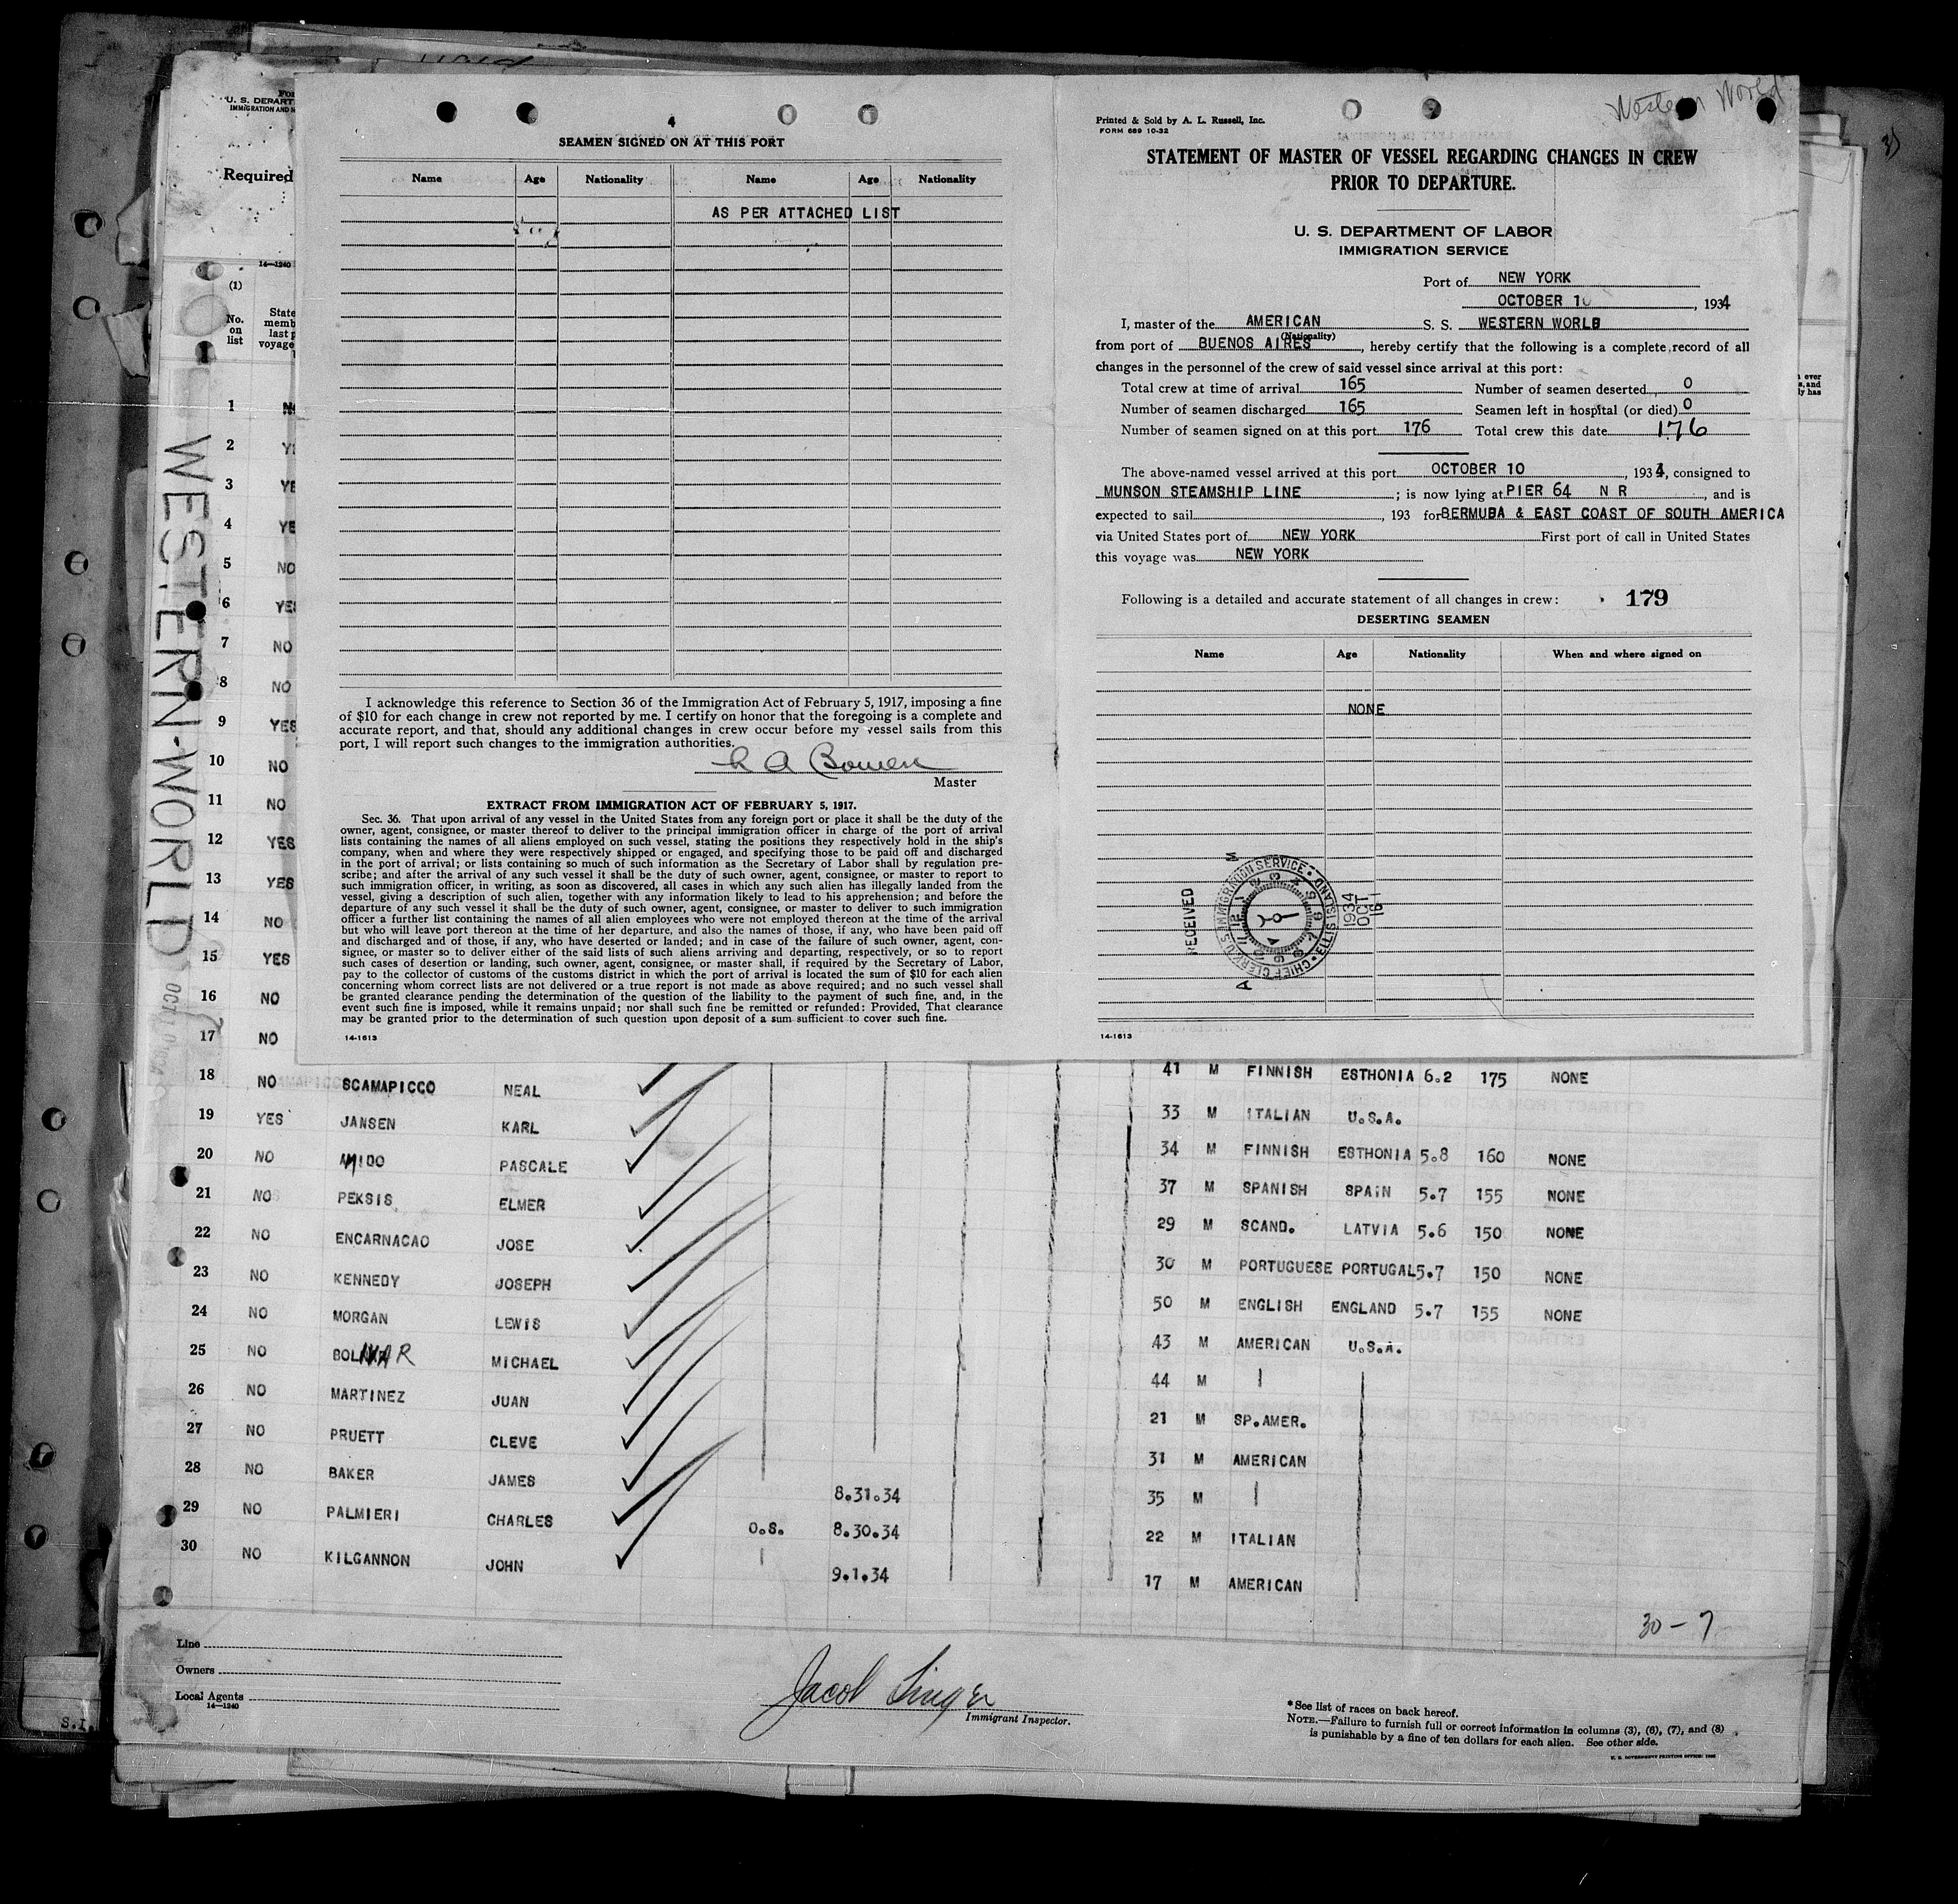 4
SEAMEN SIGNED ON AT THIS PORT
Name Age Nationality Name Age Nationality
AS PER ATTACHED LIST
I acknowledge this reference to Section 36 of the Immigration Act of February 5, 1917, imposing a fine
of $10 for each change in crew not reported by me. I certify on honor that the foregoing is a complete and
accurate report, and that, should any additional changes in crew occur before my vessel sails from this
port, I will report such changes to the immigration authorities.
Bowen
Master
EXTRACT FROM IMMIGRATION ACT OF FEBRUARY 5, 1917.
Sec. 36. That upon arrival of any vessel in the United States from any foreign port or place it shall be the duty of the
owner, agent, consignee, or master thereof to deliver to the principal immigration officer in charge of the port of arrival
lists containing the names of all aliens employed on such vessel, stating the positions they respectively hold in the ship's
company, when and where they were respectively shipped or engaged, and specifying those to be paid off and discharged
in the port of arrival; or lists containing so much of such information as the Secretary of Labor shall by regulation pre-
scribe; and after the arrival of any such vessel it shall be the duty of such owner, agent, consignee, or master to report to
such immigration officer, in writing, as soon as discovered, all cases in which any such alien has illegally landed from the
vessel, giving a description of such alien, together with any information likely to lead to his apprehension; and before the
departure of any such vessel it shall be the duty of such owner, agent, consignee, or master to deliver to such immigration
officer a further list containing the names of all alien employees who were not employed thereon at the time of the arrival
but who will leave port thereon at the time of her departure, and also the names of those, if any, who have been paid off
and discharged and of those, if any, who have deserted or landed; and in case of the failure of such owner, agent, con-
signee, or master so to deliver either of the said lists of such aliens arriving and departing, respectively, or so to report
such cases of desertion or landing, such owner, agent, consignee, or master shall, if required by the Secretary of Labor,
pay to the collector of customs of the customs district in which the port of arrival is located the sum of $10 for each alien
concerning whom correct lists are not delivered or a true report is not made as above required; and no such vessel shall
be granted clearance pending the determination of the question of the liability to the payment of such fine, and, in the
event such fine is imposed, while it remains unpaid; nor shall such fine be remitted or refunded: Provided, That clearance
may be granted prior to the determination of such question upon deposit of a sum sufficient to cover such fine.
14-1613
Western World
Printed & Sold by A. L. Russell, Inc.
FORM 689 10-32
STATEMENT OF MASTER OF VESSEL REGARDING CHANGES IN CREW
PRIOR TO DEPARTURE.
U. S. DEPARTMENT OF LABOR
IMMIGRATION SERVICE
Port of NEW YORK
OCTOBER 10, 1934
I, master of the AMERICAN S. S. WESTERN WORLD
(Nationality)
from port of BUENOS AIRES, hereby certify that the following is a complete record of all
changes in the personnel of the crew of said vessel since arrival at this port:
Total crew at time of arrival 165 Number of seamen deserted 0
Number of seamen discharged 165 Seamen left in hospital (or died) 0
Number of seamen signed on at this port 176 Total crew this date 176
The above-named vessel arrived at this port OCTOBER 10, 1934, consigned to
MUNSON STEAMSHIP LINE; is now lying at PIER 64 N R, and is
expected to sail, 193 for BERMUDA & EAST COAST OF SOUTH AMERICA
via United States port of NEW YORK First port of call in United States
this voyage was NEW YORK
Following is a detailed and accurate statement of all changes in crew: 179
DESERTING SEAMEN
Name Age Nationality When and where signed on
NONE
RECEIVED
CHIEF CLERK U.S. IMMIGRATION SERVICE ELLIS ISLAND
1934 OCT 16
14-1613
U. S. DEPART
Required
14—1240
(1)
No. on list
State
memb
last p
voyage
WESTERN-WORLD
1
2
3 YE
4 YE
5 NO
6 YES
7 NO
8 NO
9 YES
10 NO
11 NO
12 YES
13 YES
14 NO
15 YES
16 NO
17 NO
18 NO SCAMAPICCO NEAL 41 M FINNISH ESTHONIA 6.2 175 NONE
19 YES JANSEN KARL 33 M ITALIAN U.S.A.
20 NO AMIDO PASCALE 34 M FINNISH ESTHONIA 5.8 160 NONE
21 NO PEKSIS ELMER 37 M SPANISH SPAIN 5.7 155 NONE
22 NO ENCARNACAO JOSE 29 M SCAND. LATVIA 5.6 150 NONE
23 NO KENNEDY JOSEPH 30 M PORTUGUESE PORTUGAL 5.7 150 NONE
24 NO MORGAN LEWIS 50 M ENGLISH ENGLAND 5.7 155 NONE
25 NO BOLIVAR MICHAEL 43 M AMERICAN U.S.A.
26 NO MARTINEZ JUAN 44 M
27 NO PRUETT CLEVE 21 M SP.AMER.
28 NO BAKER JAMES 8.31.34 31 M AMERICAN
29 NO PALMIERI CHARLES O.S. 8.30.34 35 M
30 NO KILGANNON JOHN 9.1.34 22 M ITALIAN
17 M AMERICAN
30-7
Line
Owners
Local Agents
14—1240
Jacob Singer
Immigrant Inspector.
*See list of races on back hereof.
NOTE.—Failure to furnish full or correct information in columns (3), (6), (7), and (8)
is punishable by a fine of ten dollars for each alien. See other side.
S.I.